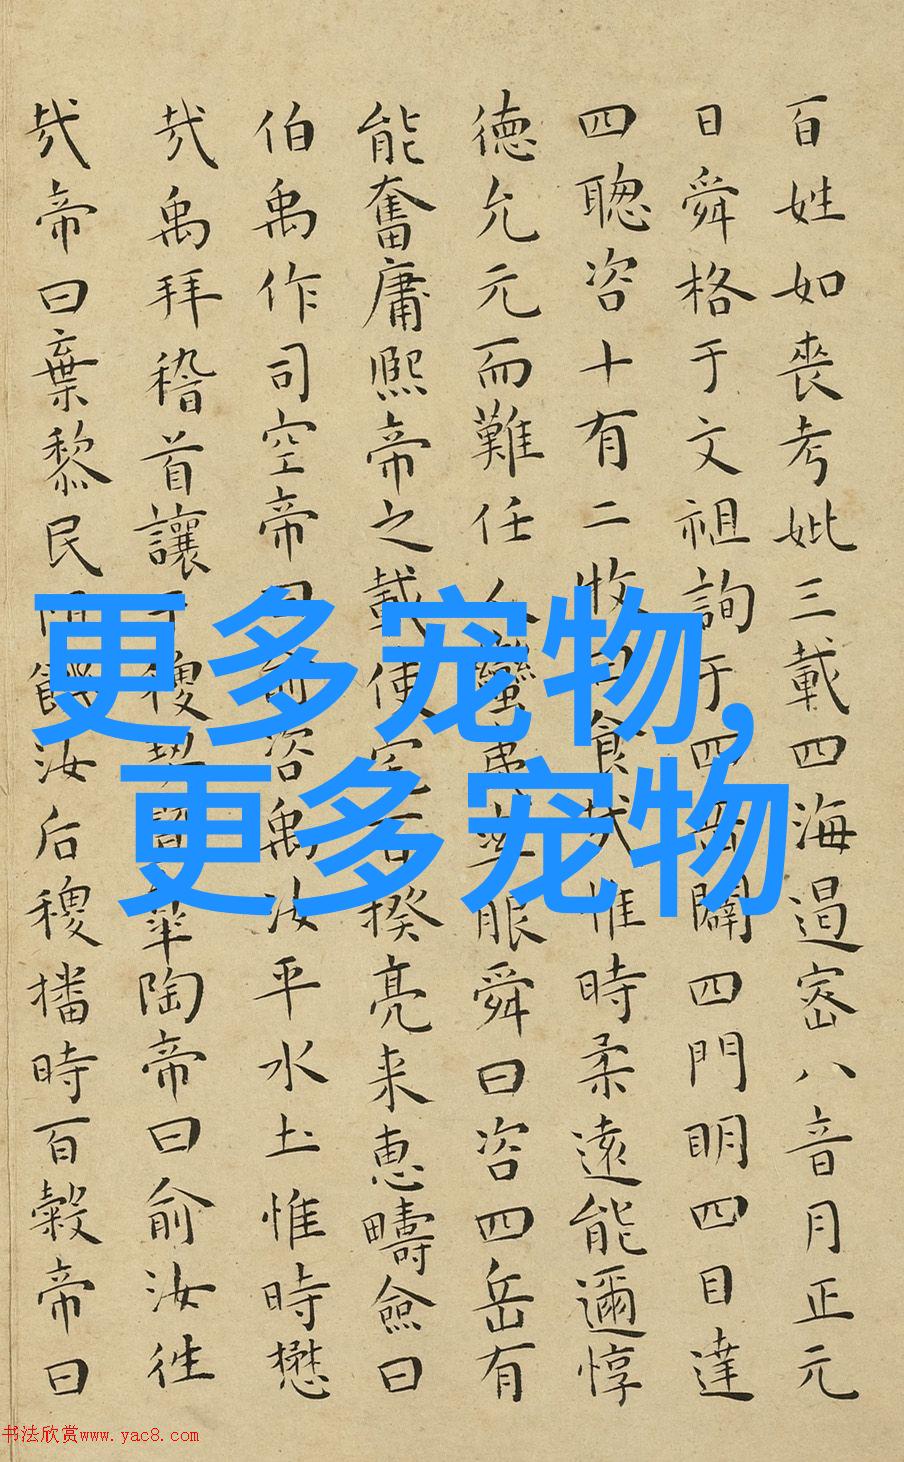 百姓如喪考妣三載四海遏密八音月正元
日舜格于文祖詢于四岳闢四門明四目達
四聰咨十有二牧曰食哉惟時柔遠能邇惇
德允元而難任人蠻夷率服舜曰咨四岳有
能奮庸熙帝之載使宅百揆亮来恵疇僉曰
伯禹作司空帝曰俞咨禹汝平水土惟時懋
哉禹拜稽首讓于稷契暨皋陶帝曰俞汝徃
哉帝曰棄黎民阻飢汝后稷播時百穀帝曰
更多宠物,
更多宠物
书法欣赏www.yac8.com